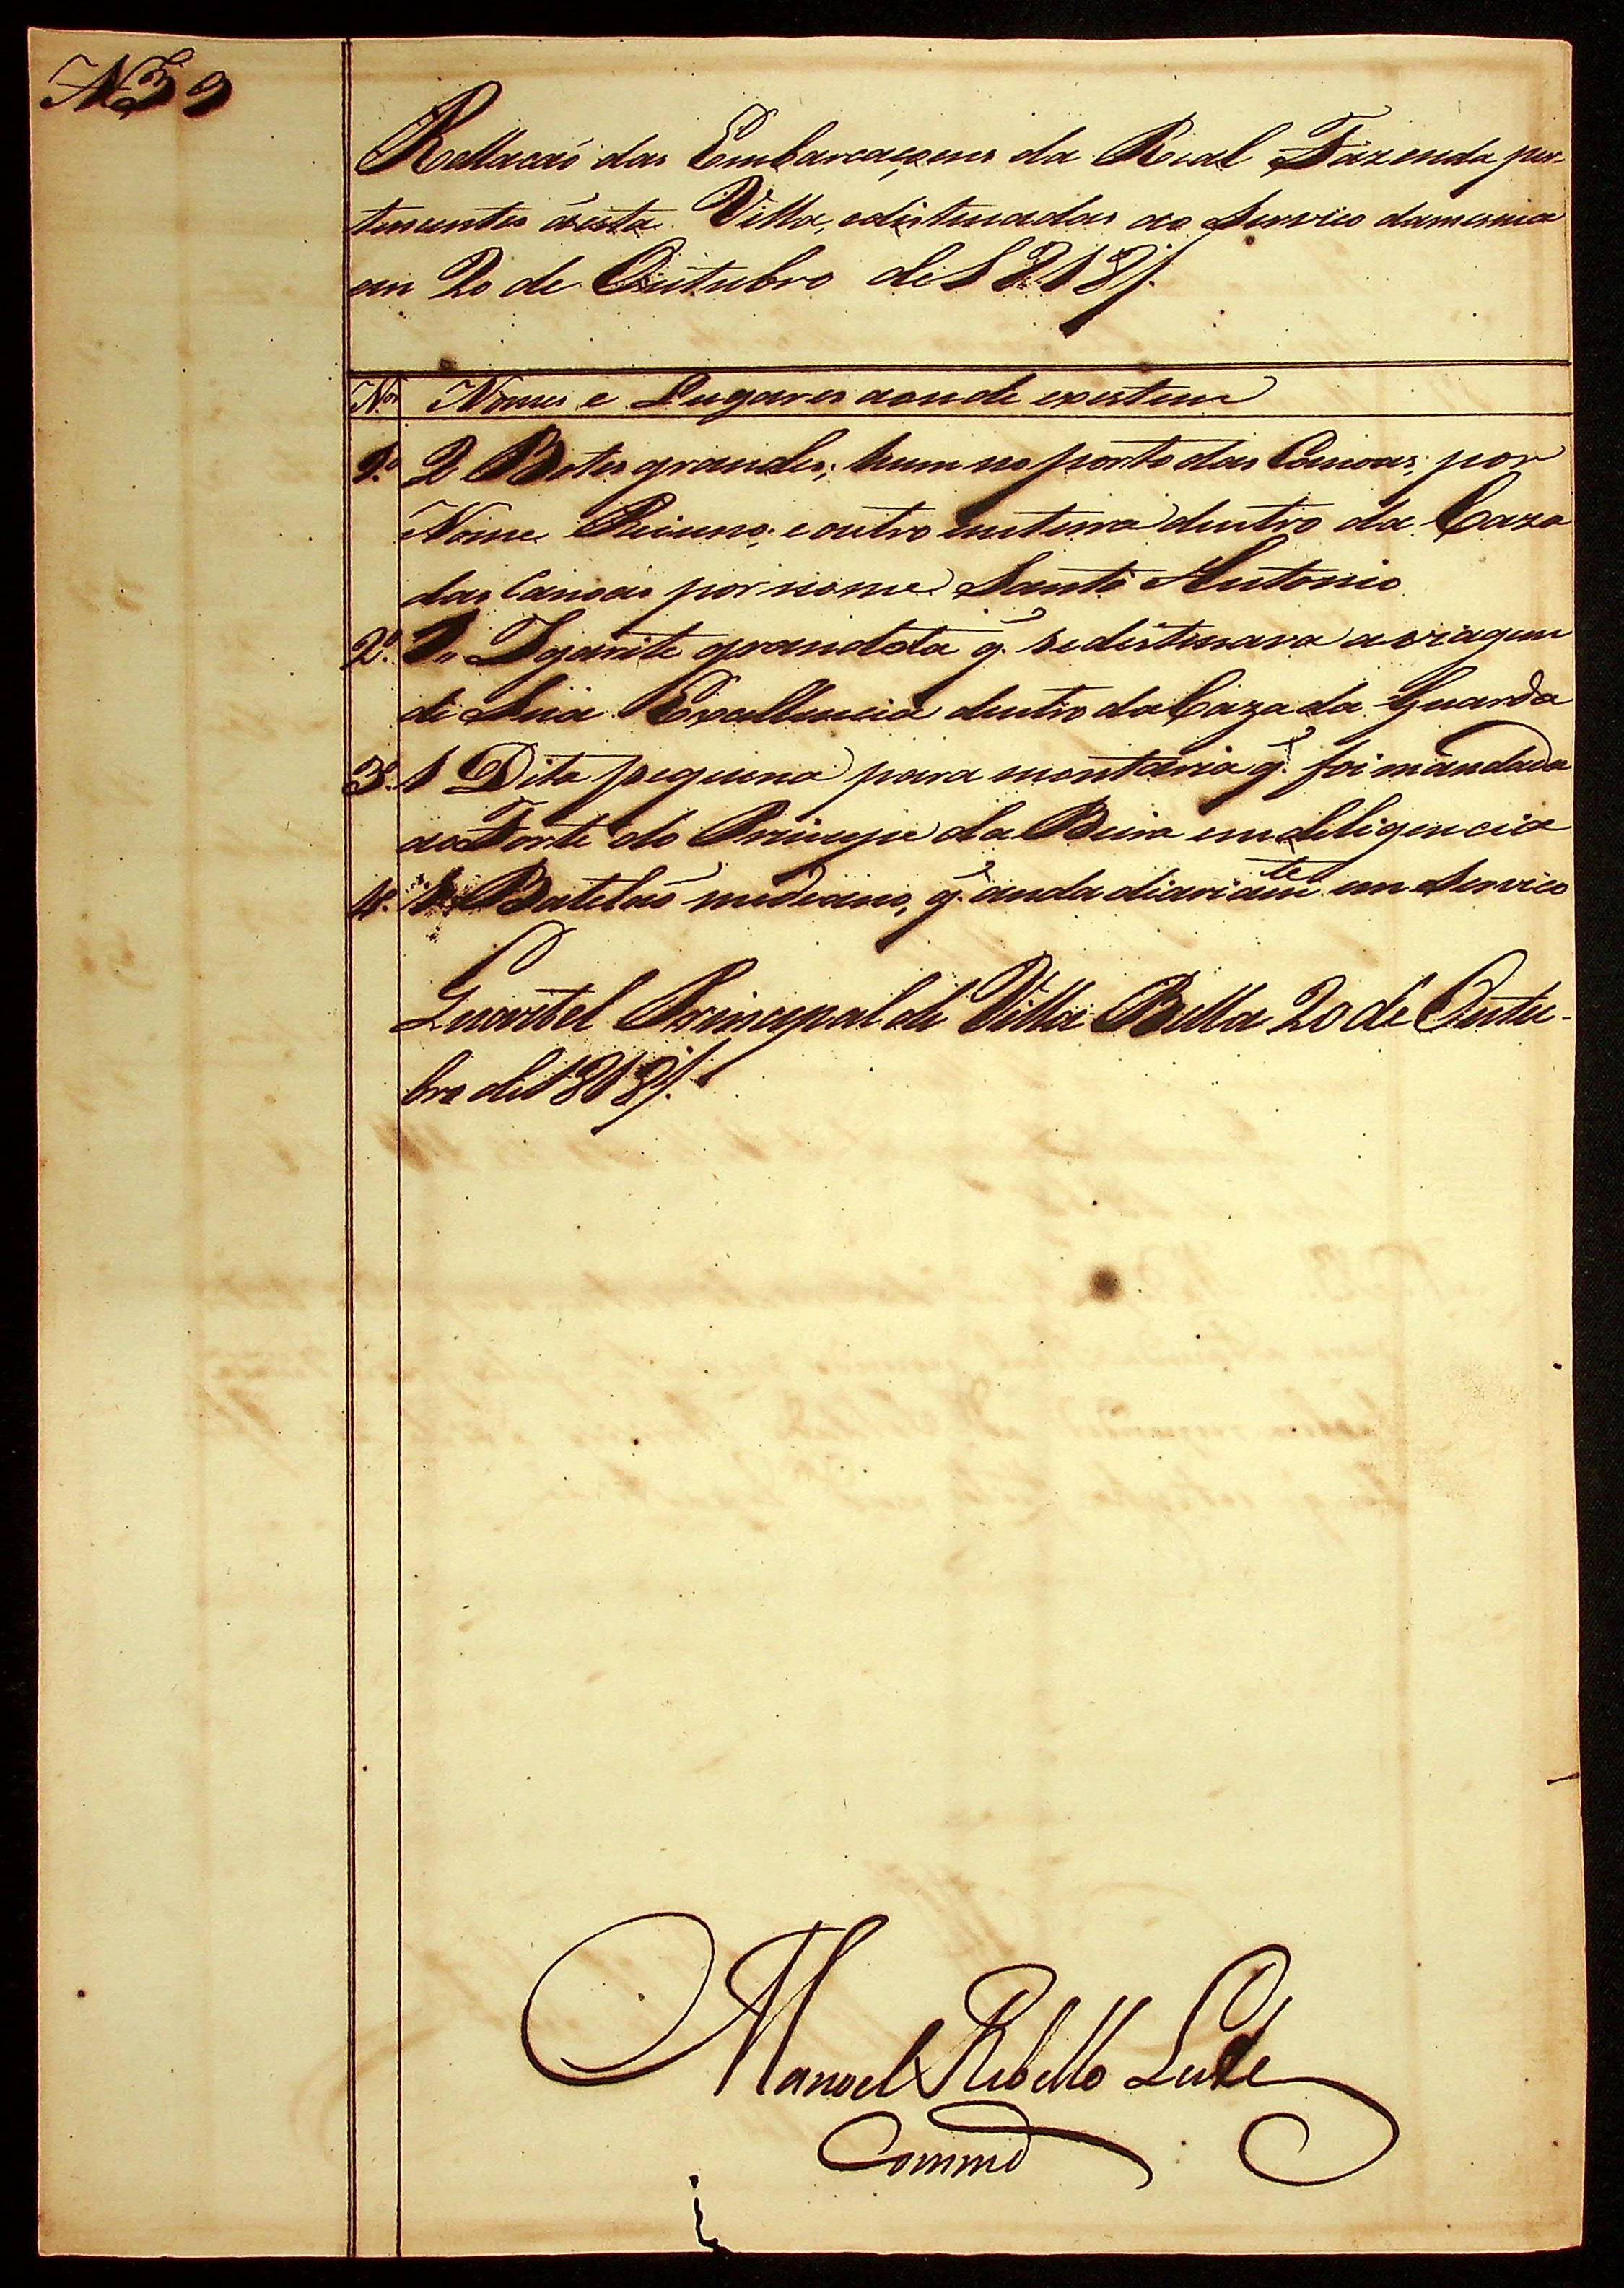 N 39
Rellacaõ das Embarcaçoens da Real Fazenda per-
tencentes ávista Villa, edistenadas ao Servico damesma
em 20 de Outubro de 1818//.
Nos Nomes e Lugares aonde existem
1.o 2 Botes grandes; hum no porto das Canoas, por
Nome Reiuno; e outro em terra dentro da Caza
das Canoas por nome Santo Antonio
2.o 1 Igarite grandota q. sedistinava a viagem
de Sua Excellencia dentro da Caza da Guarda
3.o 1 Dita pequena para montaria q. foi mandada
ao Forte do Principe da Beira em deligencia
4. 1 Batelaõ mediano, q. anda diariamte em Servico
Quartel Principal de Villa Bella 20 de Outu-
bro de 1818//.
Manoel Rebello Leite
Commde